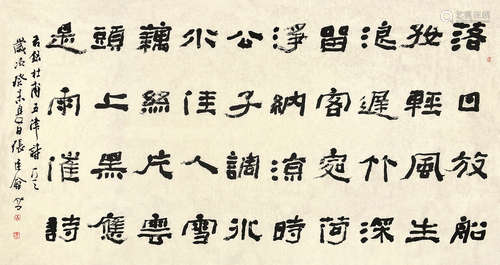 落日放船
好輕風生
浪遲竹深
留客處荷
淨納涼時
公子調冰
水佳人雪
藕絲片雲
頭上黑應
是雨催詩
右錄杜甫五律詩
歲次癸未夏日張建會書